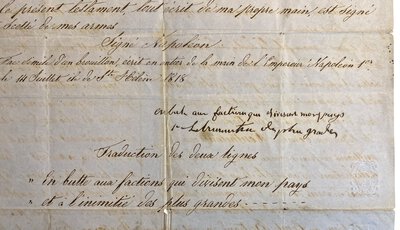 la présent testament, tout écrit de ma propre main, est signé
scellé de mes armes.
Signé Napoléon
Fac simile d'un brouillon, écrit en entier de la main de l'Empereur Napoléon 1er
le 14 Juillet de Ste Hélène 1818
en bute aux factions qui divisent mon pays
plus grandes
Traduction des deux lignes
" En butte aux factions qui divisent mon pays
" et à l'inimitié des plus grandes